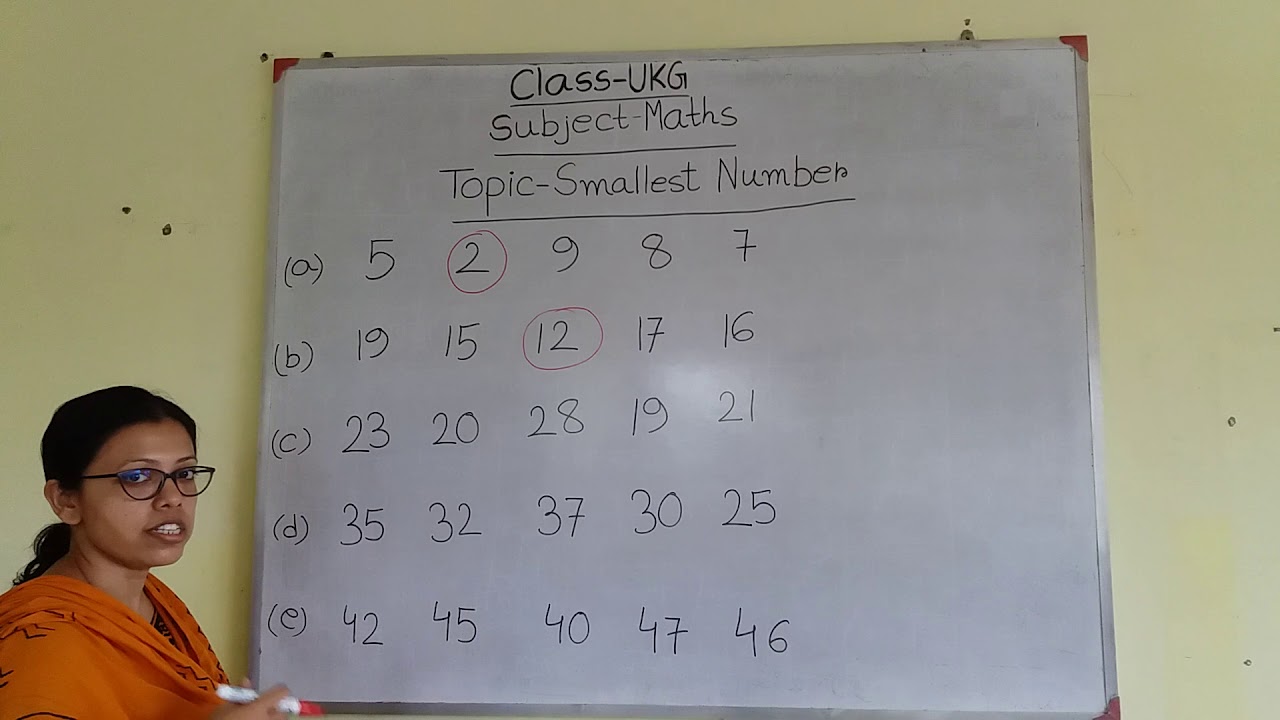 Class-UKG
Subject-Maths
Topic-Smallest Number
(a) 5 2 9 8 7
(b) 19 15 12 17 16
(c) 23 20 28 19 21
(d) 35 32 37 30 25
(e) 42 45 40 47 46